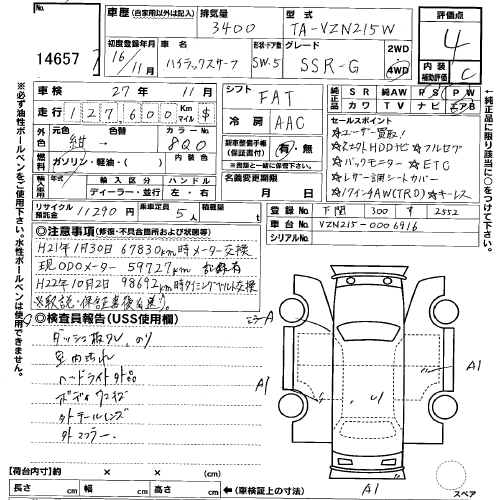 14657
車歴 (自家用以外は記入)
排気量 3400
型式 TA-VZN215W
評価点 4
初度登録年月 16年 11月
車名 ハイラックスサーフ
形状・ドア数 SW・5
グレード SSR-G
2WD
4WD
内装 補助評価 C
車検 27年 11月
走行 127,600 Km マイル $
外色 元色 紺 色替 カラーNo. 8Q0
燃料 ガソリン・軽油・( )
輸入車 年式 輸入区分 ハンドル
ディーラー・並行 左・右
リサイクル預託金 11290円
乗車定員 5人
積載量 t
シフト FAT
冷房 AAC
新車整備手帳 (保証書付) 有・無
名義変更期限 月 日
純正品 SR 純AW PS PW
カワ TV ナビ エアB
セールスポイント
☆ユーザー買取!
HDDナビ ☆フルセグ
☆バックモーター ☆ETC
☆レザー調シートカバー
17インチAW(TRD) ☆キーレス
登録No. 下関 300 す 2552
車台No. VZN215-0006916
シリアルNo.
◎注意事項 (修復・不具合箇所および状態等)
H21年1月30日 67830km時メーター交換
現ODOメーター 59727km 記録有
H22年10月2日 98692km時タイミングベルト交換
※取説・保証書後送り。
◎検査員報告 (USS使用欄)
ダッシュ板クレ、のり
室内汚れ
ヘッドライト
ボディ
外テールレンズ
外マフラー
A1
A1
A
A1
荷台内寸 (約) × ×
長さ cm 幅 cm 高さ cm ←(車検証上の寸法)
スペア
※必ず油性ボールペンをご使用下さい。水性ボールペンは使用できません。
↑純正品に限り該当に○をつけて下さい。